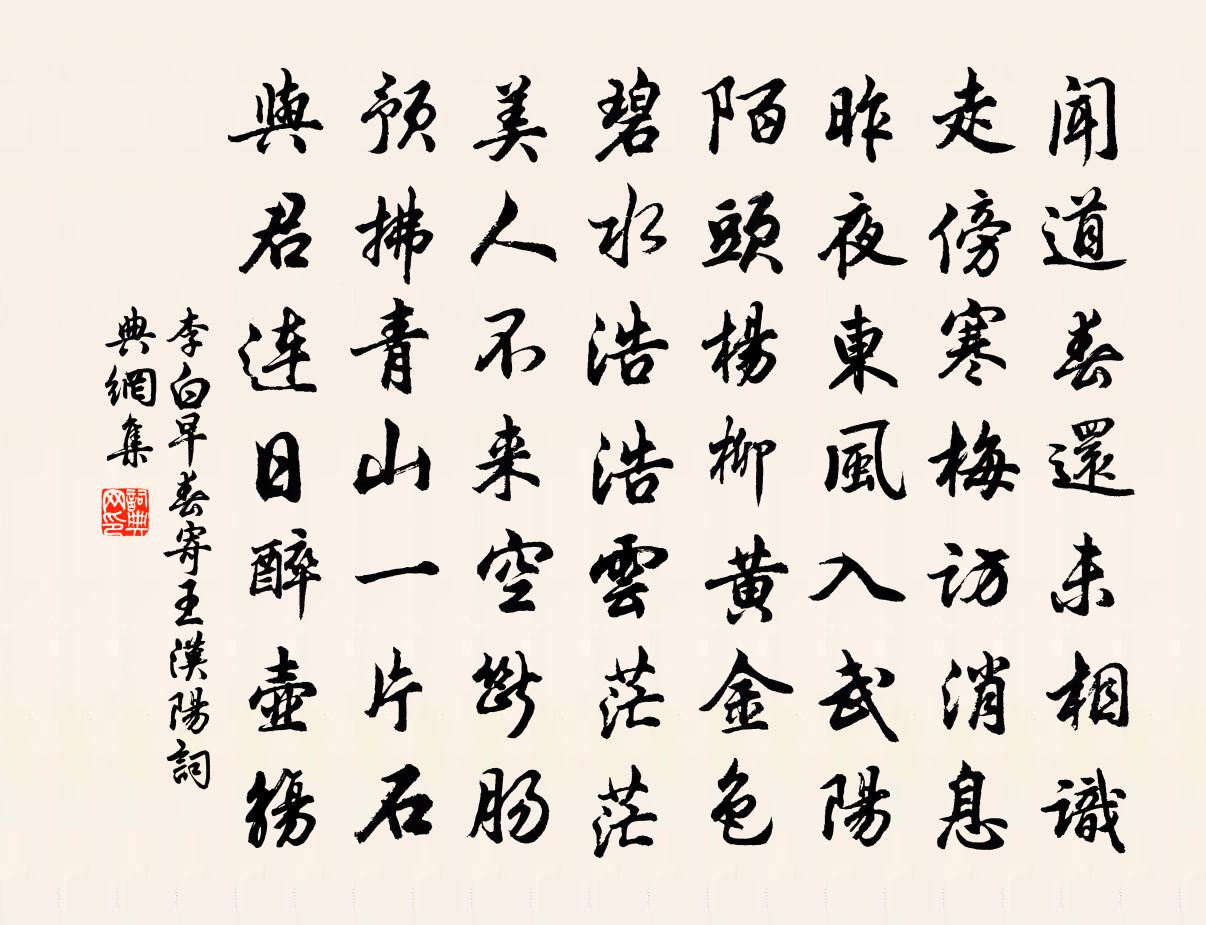 聞道春還未相識
走傍寒梅訪消息
昨夜東風入武陽
陌頭楊柳黄金色
碧水浩浩雲茫茫
美人不来空斷腸
預拂青山一片石
與君連日醉壺觴
李白早春寄王漢陽詞
典網集
詞典网印